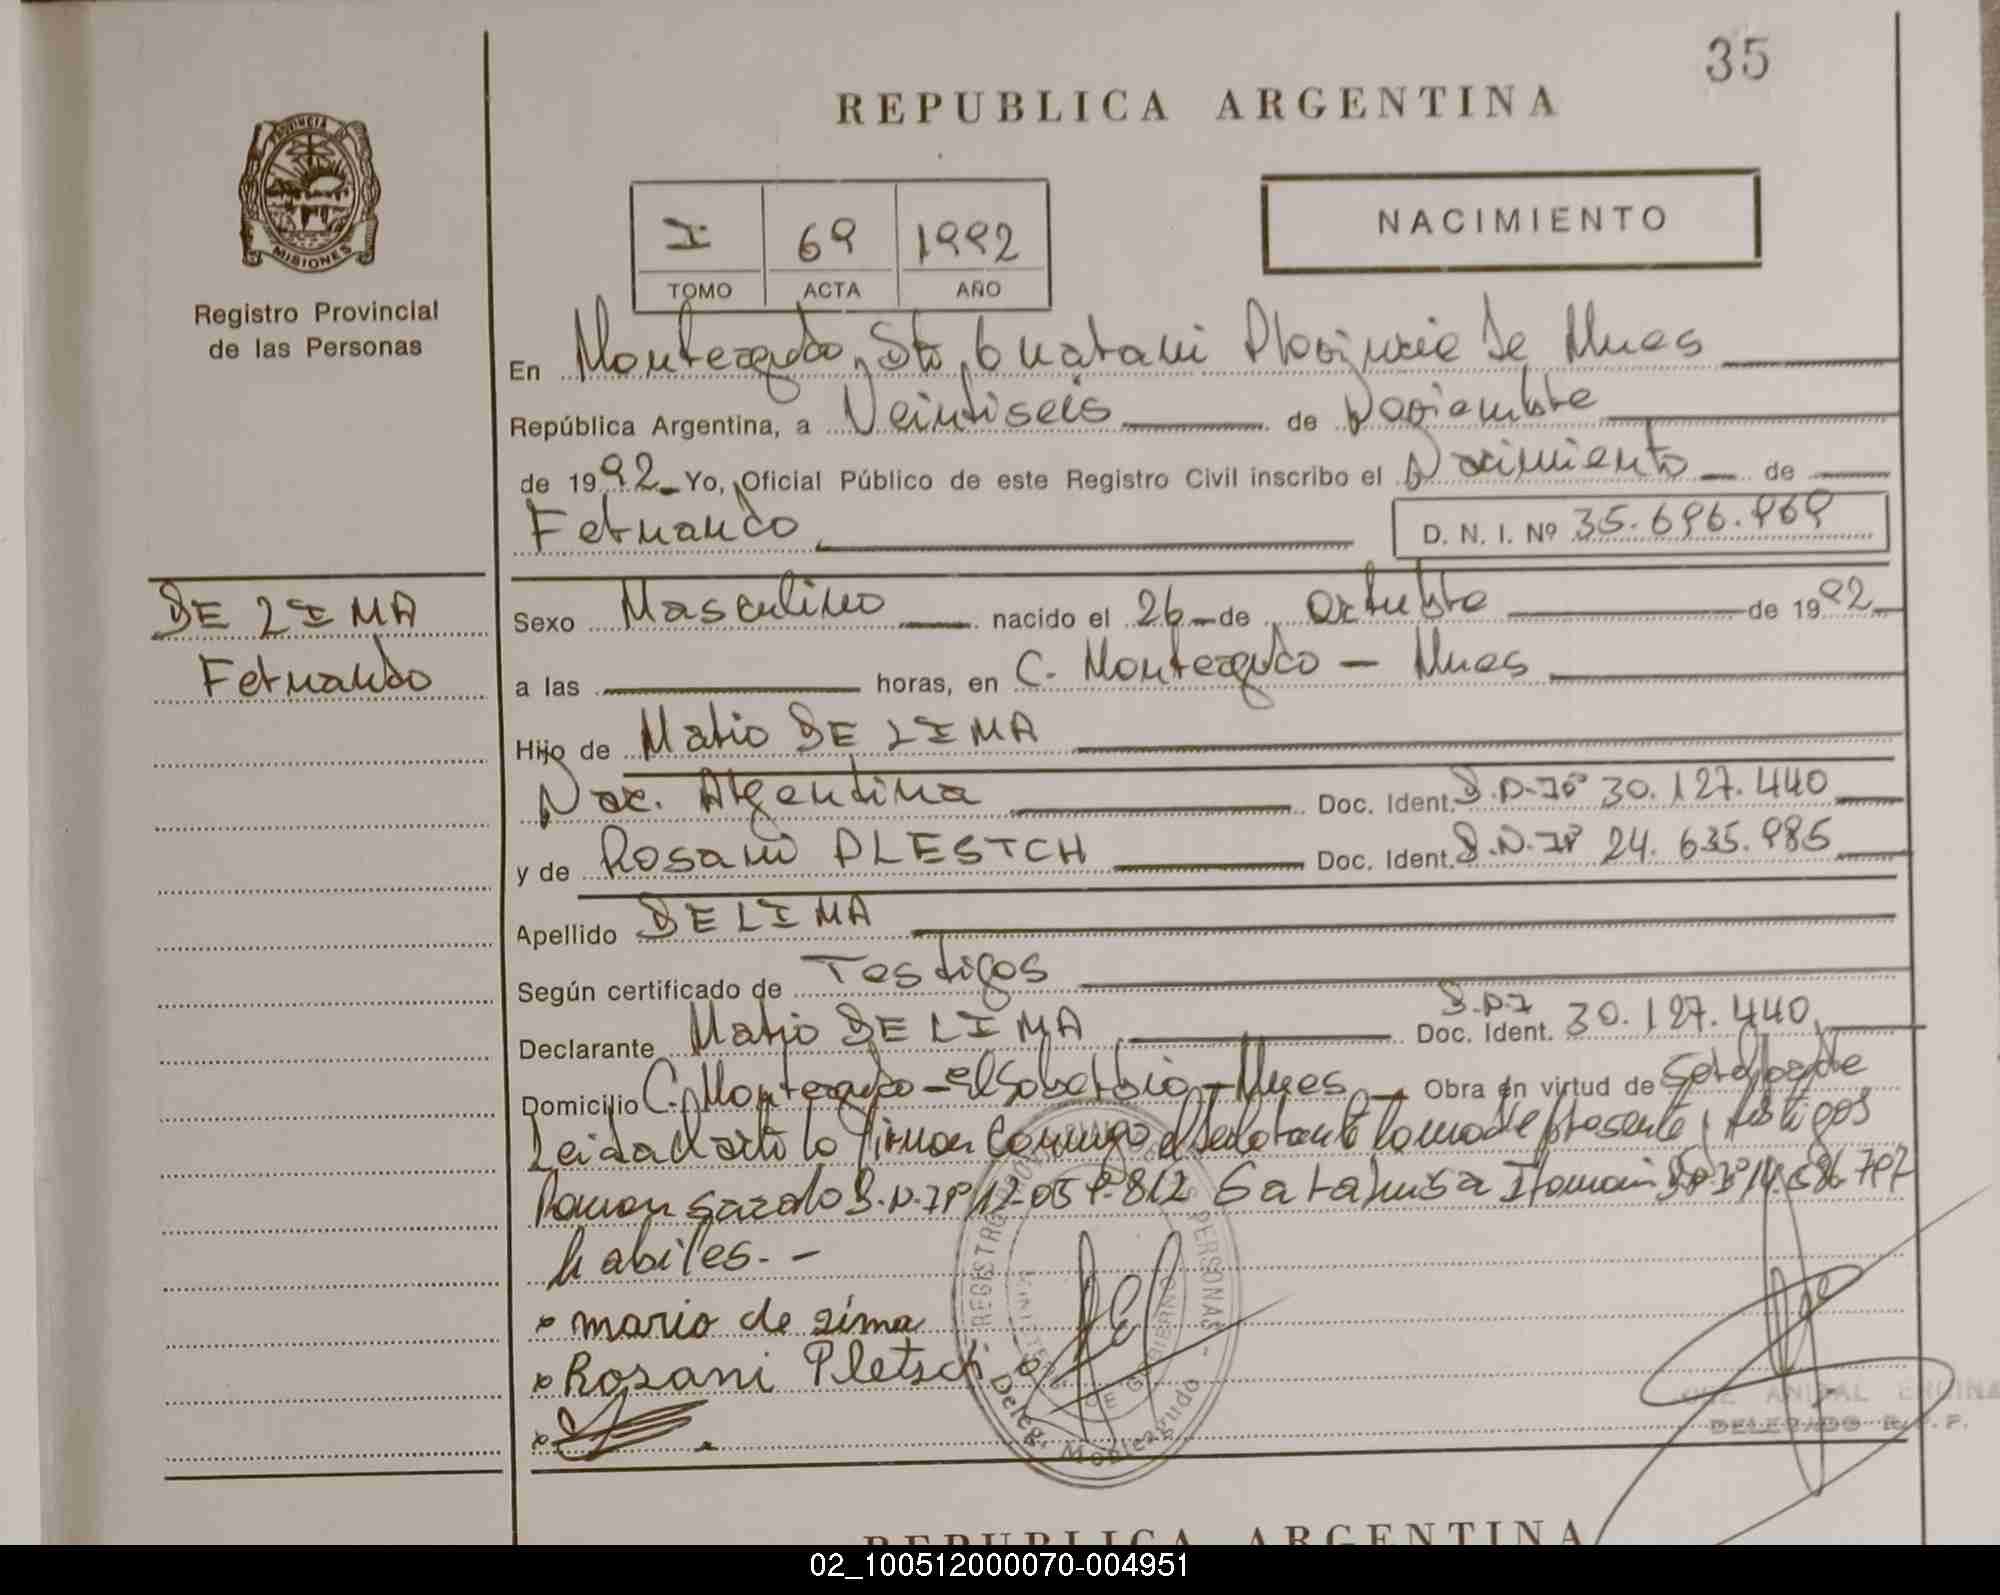 35
REPUBLICA ARGENTINA
PROVINCIA
MISIONES
Registro Provincial
de las Personas
I 69 1992
TOMO ACTA AÑO
NACIMIENTO
En Monteagudo, Dto, Guarani Provincia de Mnes
República Argentina, a Veintiseis de Noviembre
de 1992 Yo, Oficial Público de este Registro Civil inscribo el Nacimiento de
Fernando D. N. I. Nº 35.696.969
DE LIMA
Fernando
Sexo Masculino nacido el 26 de Octubre de 1992
a las horas, en C. Monteagudo - Mnes
Hijo de Mario DE LIMA
Nac. Argentina Doc. Ident. D.N.Iº 30.127.440
y de Rosani PLESTCH Doc. Ident. D.N.Iº 24.635.985
Apellido DE LIMA
Según certificado de Testigos
Declarante Mario DE LIMA Doc. Ident. D.N.I 30.127.440
Domicilio C. Monteagudo - El Soberbio - Mnes Obra en virtud de
Leida el acta la firman Conmigo el declarante la madre presente, testigos
Ramon D.N.Iº 12.059.812
habiles. -
x mario de Lima
x Rosani Pletsch
x
REGISTRO PERSONAS
MINISTERIO DE GOBIERNO
Deleg. Monteagudo
JOSE ANIBAL ENCINA
DELEGADO R.P.P.
REPUBLICA ARGENTINA
02_100512000070-004951